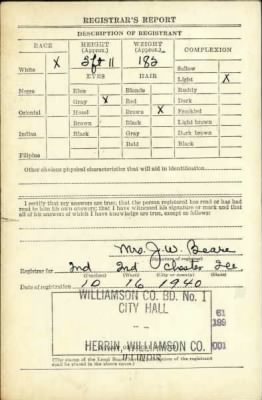 REGISTRAR'S REPORT
DESCRIPTION OF REGISTRANT
RACE HEIGHT (Approx.) WEIGHT (Approx.) COMPLEXION
White X 5 ft 11 182 Sallow
EYES HAIR Light X
Negro Blue Blonde Ruddy
Gray X Red Dark
Oriental Hazel Brown X Freckled
Brown Black Light brown
Indian Black Gray Dark brown
Bald Black
Filipino
Other obvious physical characteristics that will aid in identification
I certify that my answers are true; that the person registered has read or has had
read to him his own answers; that I have witnessed his signature or mark and that
all of his answers of which I have knowledge are true, except as follows:
Mrs. J. W. Beare
(Signature of registrar)
Registrar for 2nd 2nd
(Precinct) (Ward) (City or county) (State)
Date of registration 10 16 1940
WILLIAMSON CO. BD. No. 1
CITY HALL
61
199
HERRIN, WILLIAMSON CO. 001
ILLINOIS
(The stamp of the Local Board
shall be placed in the above space.)